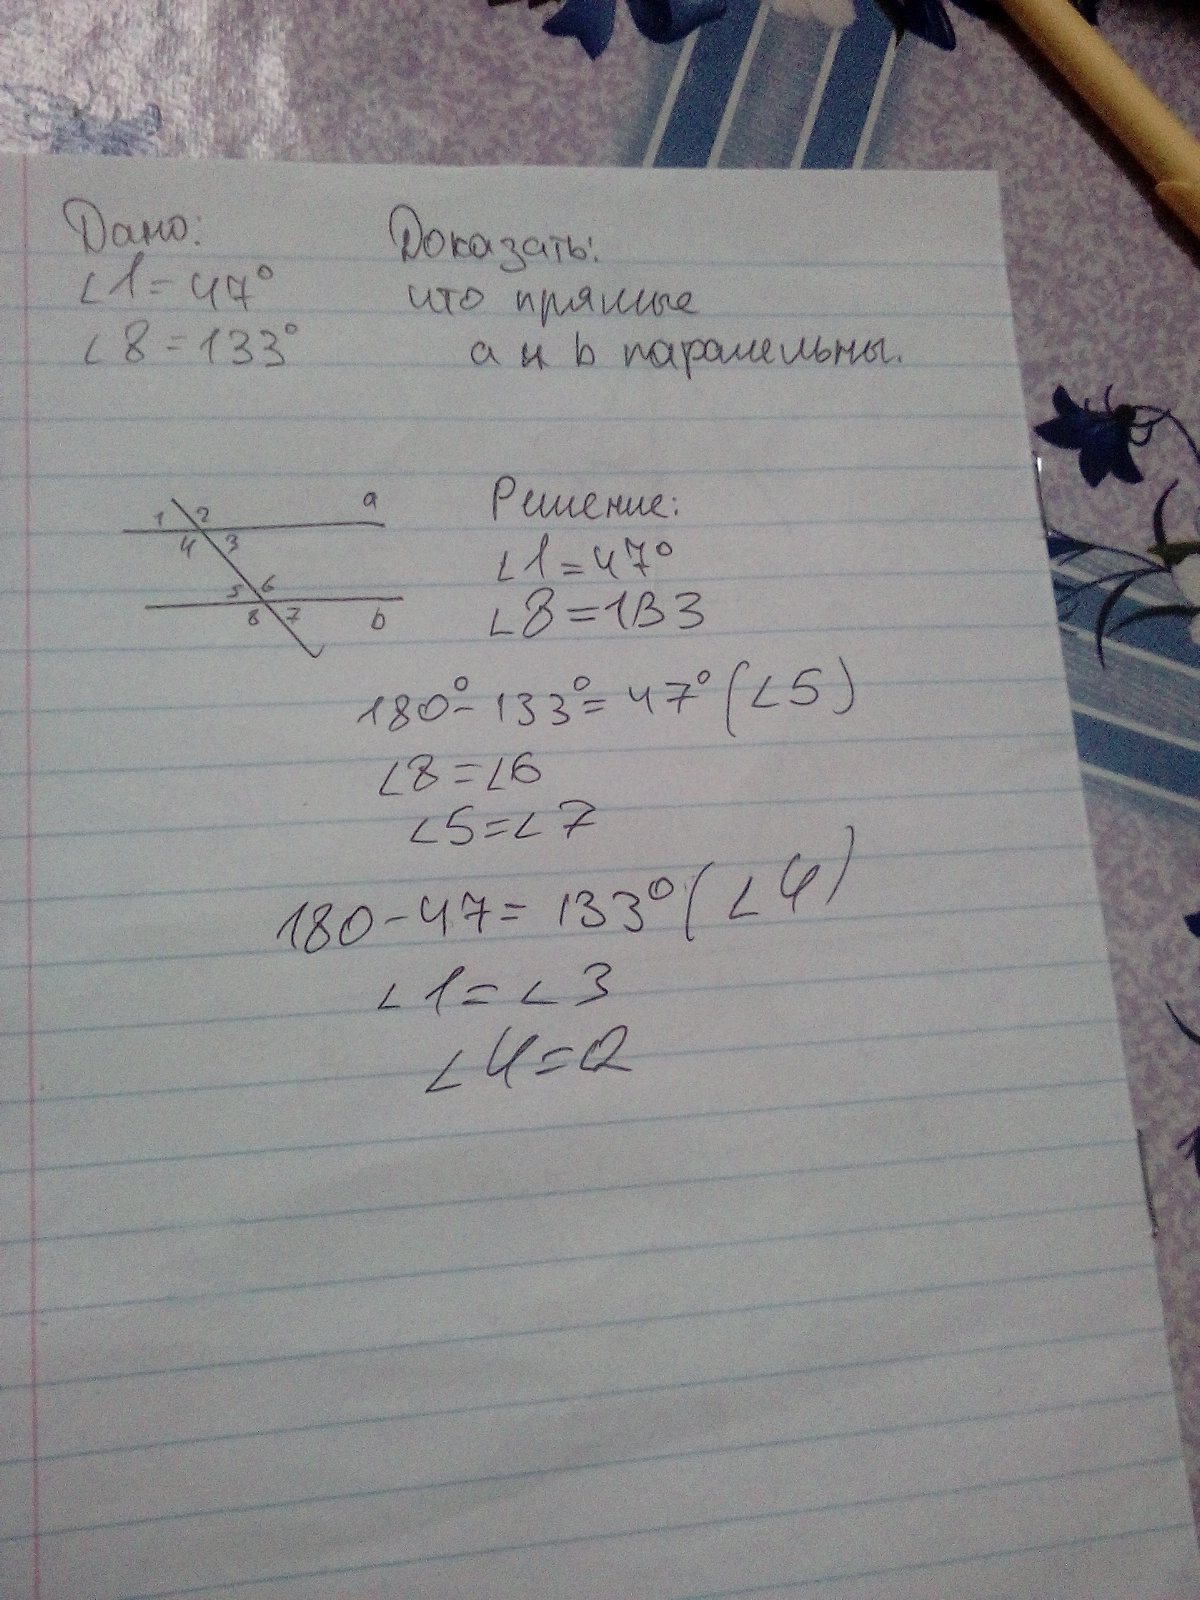 Дано:
∠1=47°
∠8=133°
Доказать:
что прямые
a и b паралельны.
1 2 a
4 3
5 6
8 7 b
Решение:
∠1=47°
∠8=133
180°-133°=47°(∠5)
∠8=∠6
∠5=∠7
180-47=133°(∠4)
∠1=∠3
∠4=2